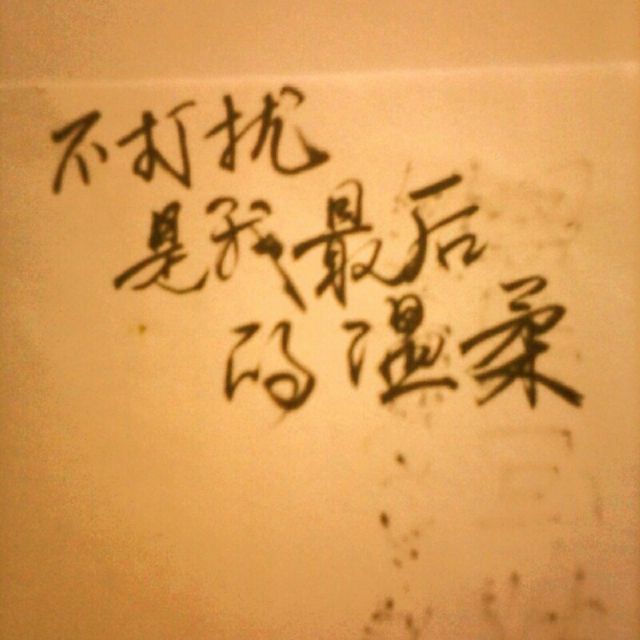 不打扰
是我最后
的温柔